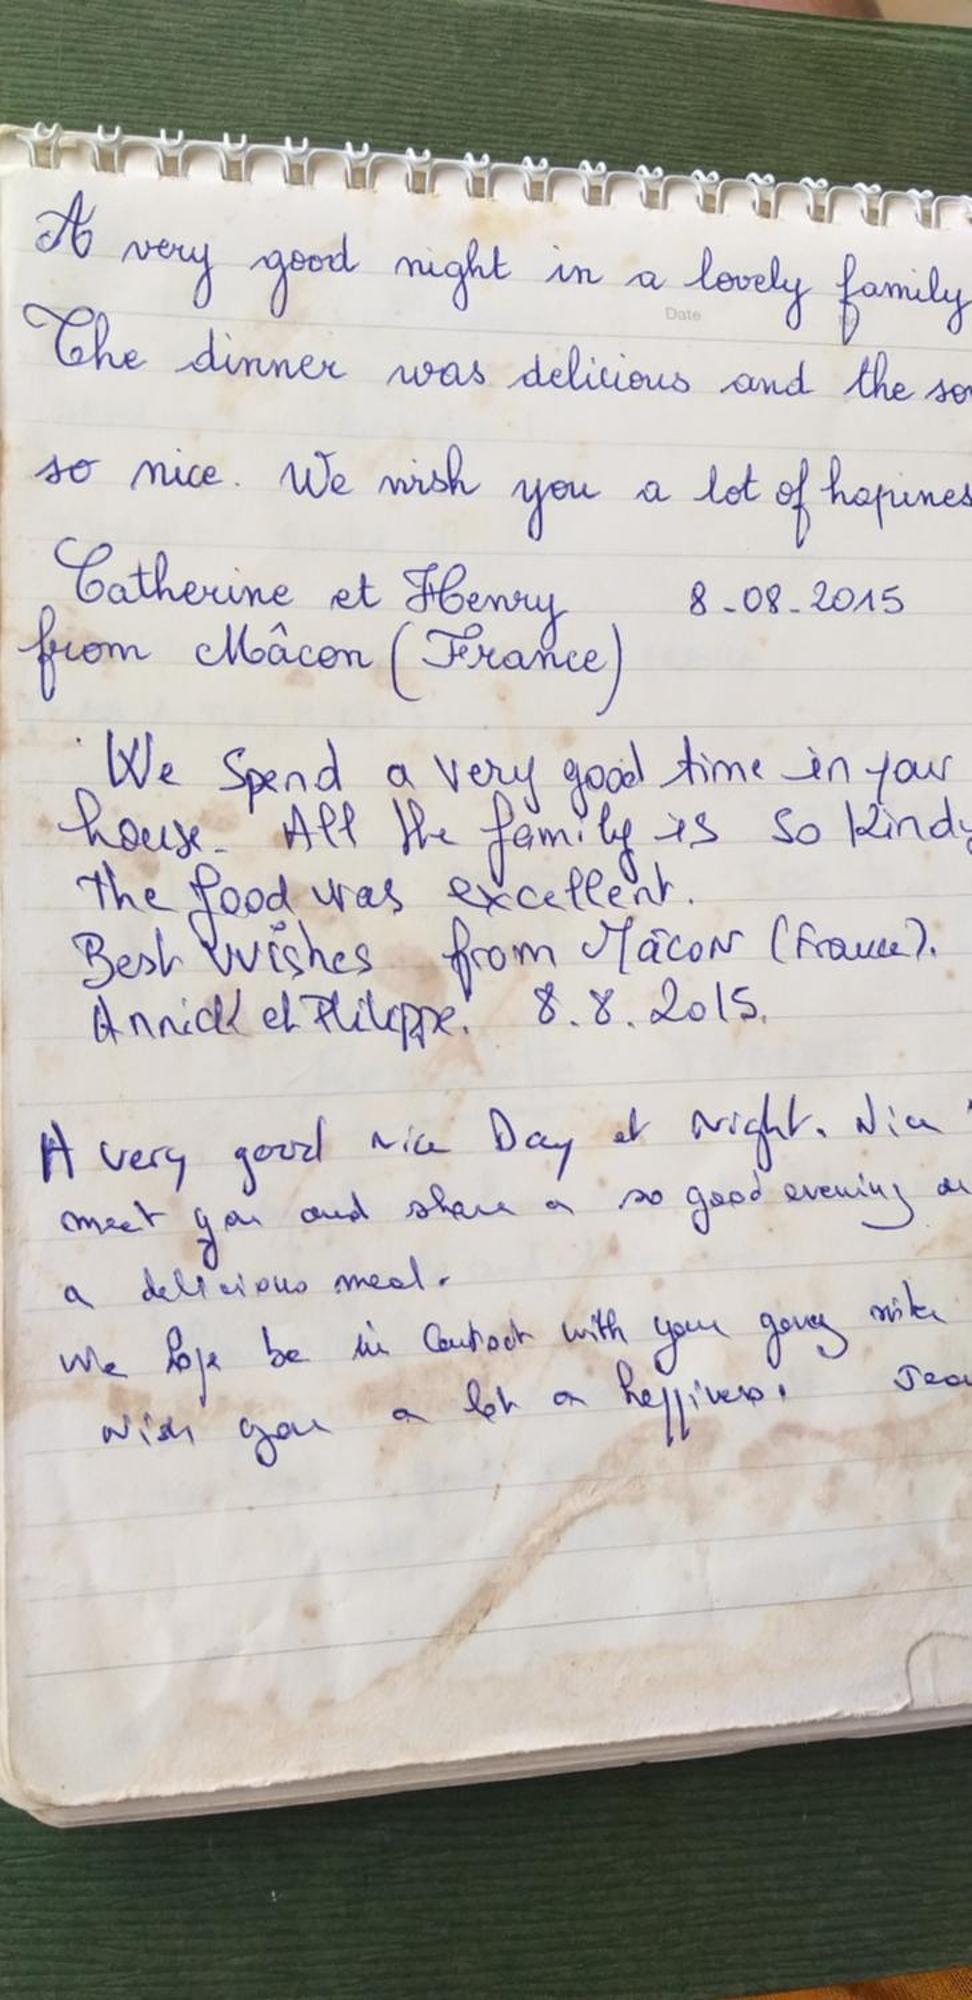 A very good night in a lovely family
Date No
The dinner was delicious and the
so nice. We wish you a lot of hapines
Catherine et Henry 8-08-2015
from Mâcon (France)
We Spend a very good time in your
house. All the family is so Kindy
the food was excellent.
Best Wishes from Mâcon (France).
Annick et Philippe. 8.8.2015.
A very good nice Day et Night. Nice
meet you and share a so good evening
a delicious meal.
We hope be in Contact with your
wish you a lot a happiness.